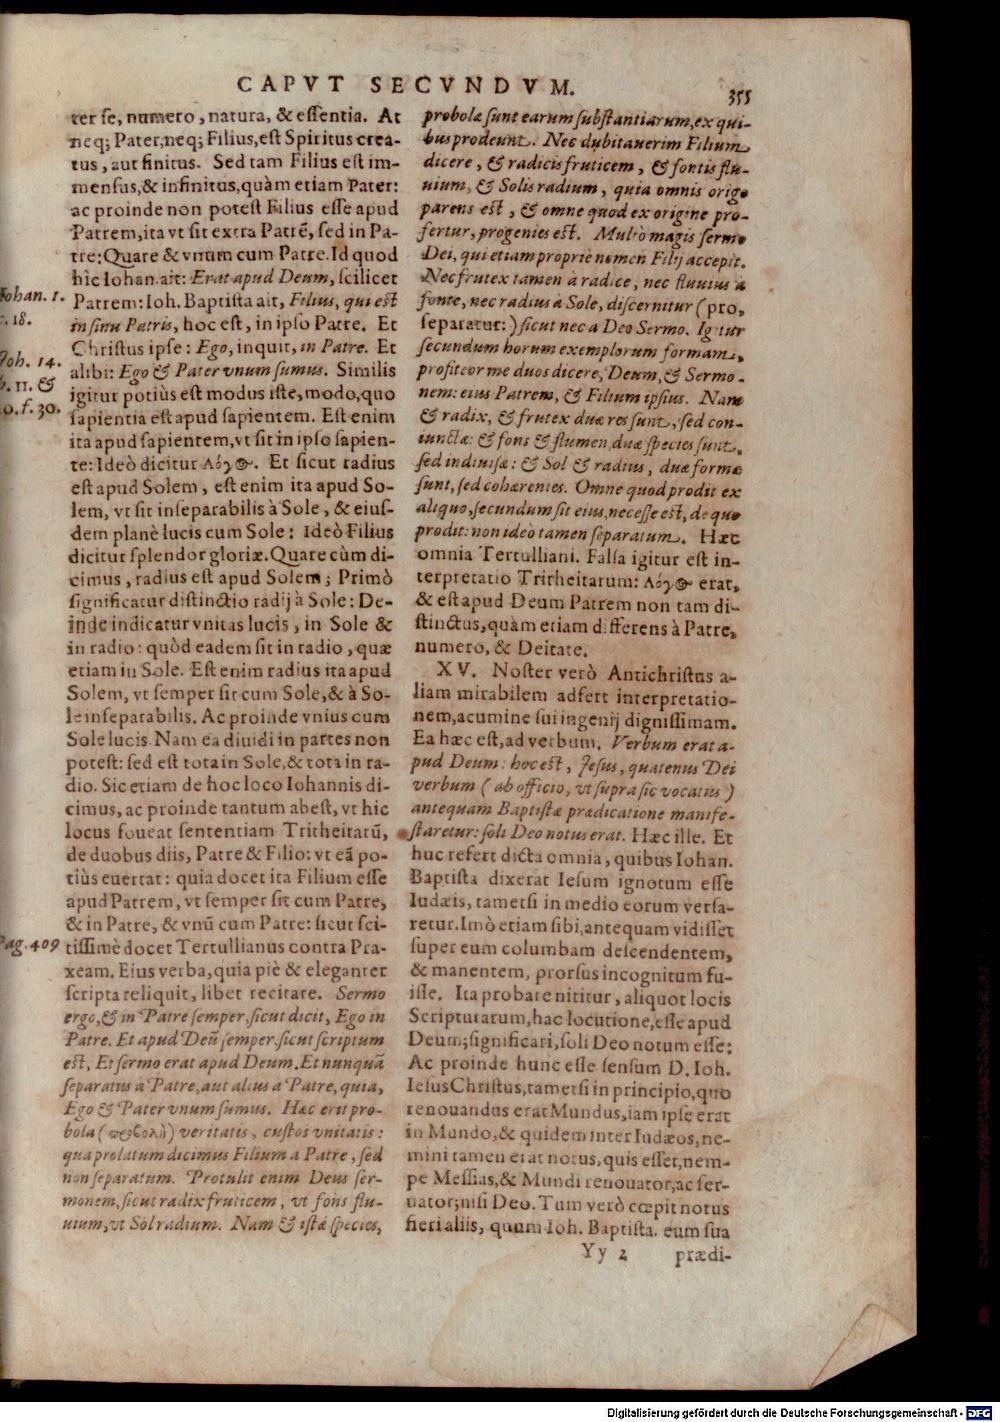 CAPVT SECVNDVM.
355
ter se, numero, natura, & essentia. At
neq; Pater, neq; Filius, est Spiritus crea-
tus, aut finitus. Sed tam Filius est im-
mensus, & infinitus, quàm etiam Pater:
ac proinde non potest Filius esse apud
Patrem, ita vt sit extra Patrē, sed in Pa-
tre: Quare & vnum cum Patre. Id quod
hîc Iohan. ait: Erat apud Deum, scilicet
Patrem: Ioh. Baptista ait, Filius, qui est
in sinu Patris, hoc est, in ipso Patre. Et
Christus ipse: Ego, inquit, in Patre. Et
alibi: Ego & Pater vnum sumus. Similis
igitur potiùs est modus iste, modo, quo
sapientia est apud sapientem. Est enim
ita apud sapientem, vt sit in ipso sapien-
te: Ideò dicitur Λόγος. Et sicut radius
est apud Solem, est enim ita apud So-
lem, vt sit inseparabilis à Sole, & eius-
dem planè lucis cum Sole: Ideò Filius
dicitur splendor gloriæ. Quare cùm di-
cimus, radius est apud Solem; Primò
significatur distinctio radij à Sole: De-
inde indicatur vnitas lucis, in Sole &
in radio: quòd eadem sit in radio, quæ
etiam in Sole. Est enim radius ita apud
Solem, vt semper sit cum Sole, & à So-
le inseparabilis. Ac proinde vnius cum
Sole lucis. Nam ea diuidi in partes non
potest: sed est tota in Sole, & tota in ra-
dio. Sic etiam de hoc loco Iohannis di-
cimus, ac proinde tantum abest, vt hic
locus foueat sententiam Tritheitarū,
de duobus diis, Patre & Filio: vt eā po-
tiùs euertat: quia docet ita Filium esse
apud Patrem, vt semper sit cum Patre,
& in Patre, & vnū cum Patre: sicut sci-
tissimè docet Tertullianus contra Pra-
xeam. Eius verba, quia piè & eleganter
scripta reliquit, libet recitare. Sermo
ergo, & in Patre semper, sicut dicit, Ego in
Patre. Et apud Deū semper, sicut scriptum
est, Et sermo erat apud Deum. Et nunquā
separatus à Patre, aut alius a Patre, quia,
Ego & Pater vnum sumus. Hæc erit pro-
bola (προβολὴ) veritatis, custos vnitatis:
qua prolatum dicimus Filium a Patre, sed
non separatum. Protulit enim Deus ser-
monem, sicut radix fruticem, vt fons flu-
uium, vt Sol radium. Nam & istæ species,
Iohan. 1.
v. 18.
Joh. 14.
b. 11. &
10. f. 30.
Pag. 409
probolæ sunt earum substantiarum, ex qui-
bus prodeunt. Nec dubitauerim Filium
dicere, & radicis fruticem, & fontis flu-
uium, & Solis radium, quia omnis origo
parens est, & omne quod ex origine pro-
fertur, progenies est. Multò magis sermo
Dei, qui etiam propriè nomen Filij accepit.
Nec frutex tamen à radice, nec fluuius a
fonte, nec radius à Sole, discernitur (pro,
separatur:) sicut nec a Deo Sermo. Igitur
secundum horum exemplorum formam,
profiteor me duos dicere, Deum, & Sermo-
nem: eius Patrem, & Filium ipsius. Nam
& radix, & frutex duæ res sunt, sed con-
iunctæ: & fons & flumen, duæ species sunt,
sed indiuisæ: & Sol & radius, duæ formæ
sunt, sed cohærentes. Omne quod prodit ex
aliquo, secundum sit eius, necesse est, de quo
prodit: non ideò tamen separatum. Hæc
omnia Tertulliani. Falsa igitur est in-
terpretatio Tritheitarum: Λόγος erat,
& est apud Deum Patrem non tam di-
stinctus, quàm etiam differens à Patre,
numero, & Deitate.
XV. Noster verò Antichristus a-
liam mirabilem adfert interpretatio-
nem, acumine sui ingenij dignissimam.
Ea hæc est, ad verbum. Verbum erat a-
pud Deum: hoc est, Jesus, quatenus Dei
verbum (ab officio, vt supra sic vocatus)
antequam Baptistæ prædicatione manife-
staretur: soli Deo notus erat. Hæc ille. Et
huc refert dicta omnia, quibus Iohan.
Baptista dixerat Iesum ignotum esse
Iudæis, tametsi in medio eorum versa-
retur. Imò etiam sibi, antequam vidisset
super eum columbam descendentem,
& manentem, prorsus incognitum fu-
isse. Ita probare nititur, aliquot locis
Scripturarum, hac locutione, esse apud
Deum; significari, soli Deo notum esse:
Ac proinde hunc esse sensum D. Ioh.
Iesus Christus, tametsi in principio, quo
renouandus erat Mundus, iam ipse erat
in Mundo, & quidem inter Iudæos, ne-
mini tamen erat notus, quis esset, nem-
pe Messias, & Mundi renouator, ac ser-
uator; nisi Deo. Tum verò cœpit notus
fieri aliis, quum Ioh. Baptista. eum sua
Yy 2 prædi-
Digitalisierung gefördert durch die Deutsche Forschungsgemeinschaft - DFG